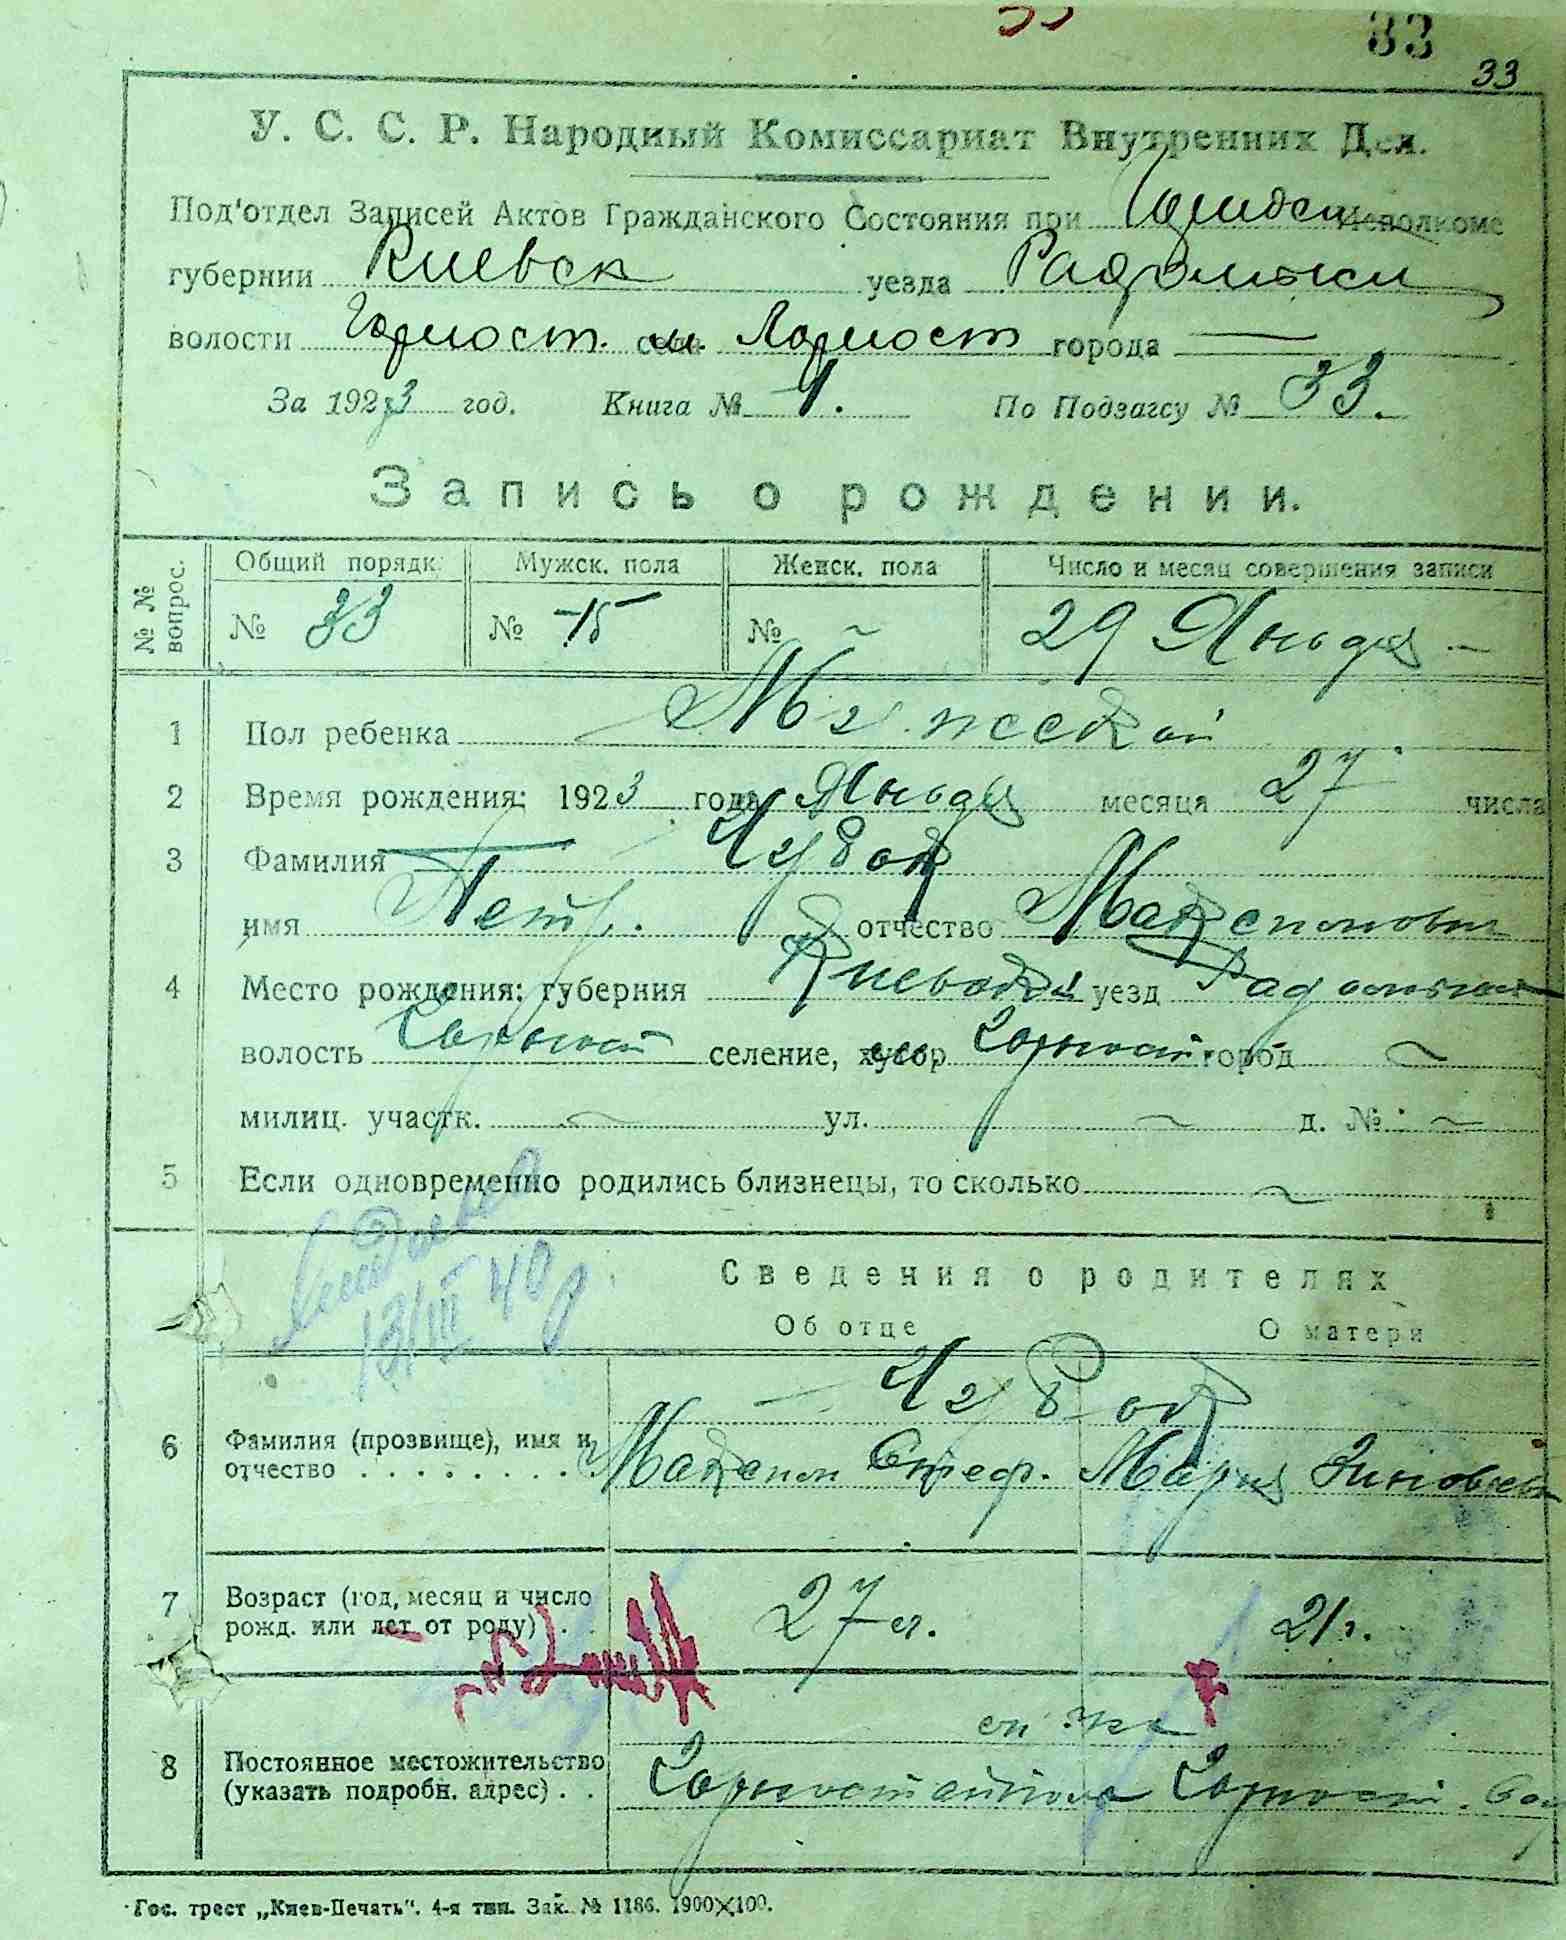 33
33
У. С. С. Р. Народный Комиссариат Внутренних Дел.
Под'отдел Записей Актов Гражданского Состояния при Исполкоме
губернии Киевск уезда Радомысл
волости Горност. м. Горност города —
За 1923 год. Книга № 1. По Подзагсу № 33.
Запись о рождении.
№ № вопрос.
Общий порядк. Мужск. пола Женск. пола Число и месяц совершения записи
№ 33 № 15 № ~ 29 Января
1 Пол ребенка Мужской
2 Время рождения: 1923 года Января месяца 27 числа
3 Фамилия Чубок
имя Петр. отчество Максимович
4 Место рождения: губерния Киевск уезд Радомысл
волость Горност селение, хутор Горност город ~
милиц. участк. ~ ул. ~ д. № ~
5 Если одновременно родились близнецы, то сколько ~
13/III 40
Сведения о родителях
Об отце О матери
Чубок
6 Фамилия (прозвище), имя и Максим Стеф. Мария Зиновьев
отчество
7 Возраст (год, месяц и число 27 л. 21 г.
рожд. или лет от роду)
8 Постоянное местожительство
(указать подробн. адрес) Горностайполь Горност.
Гос. трест „Киев-Печать". 4-я тип. Зак. № 1186. 1900×100.